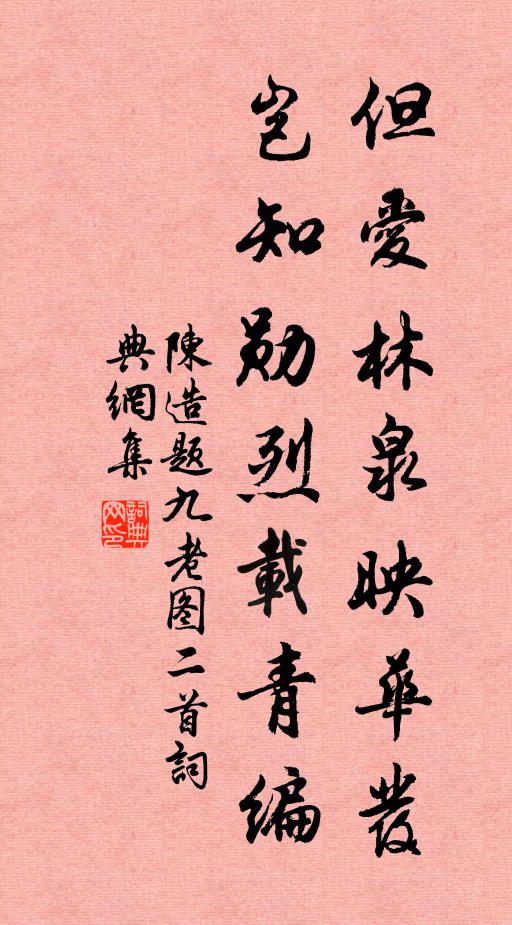 但愛林泉映華髮
豈知勛烈載青編
陳造題九老图二首詞
典網集
詞典网印